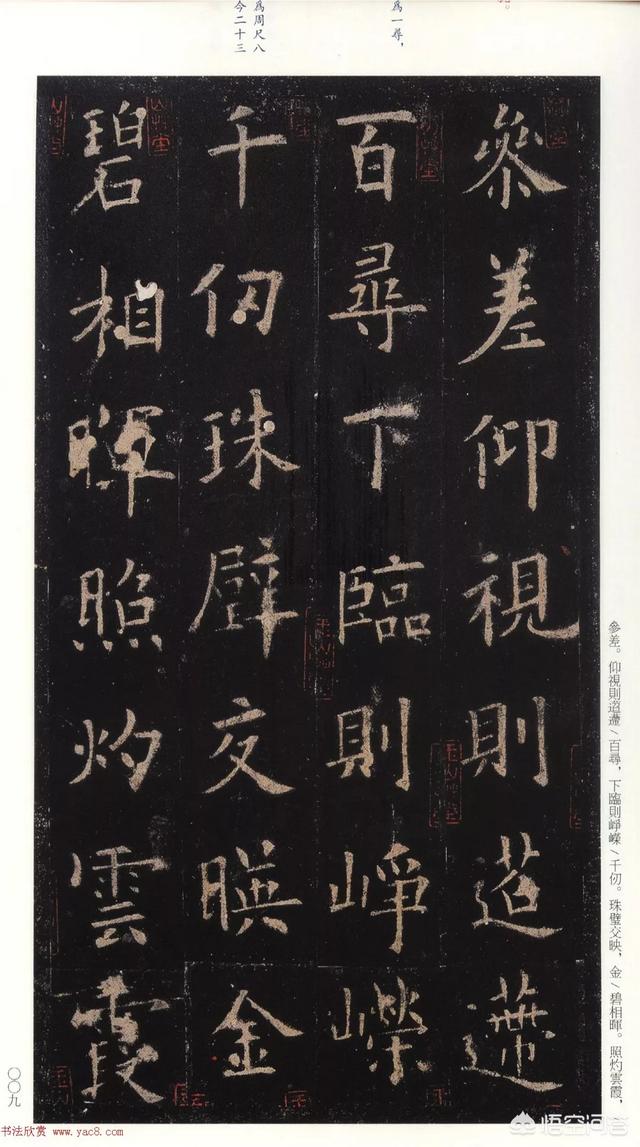 為一尋，
為周尺八
今二十三
叅差仰視則迢遰
百尋下臨則崢嶸
千仞珠璧交暎金
碧相暉照灼雲霞
參差。仰視則迢遰／百尋，下臨則崢嶸／千仞。珠璧交映，金／碧相暉。照灼雲霞，
〇〇九
书法欣赏 www.yac8.com
悟空问答